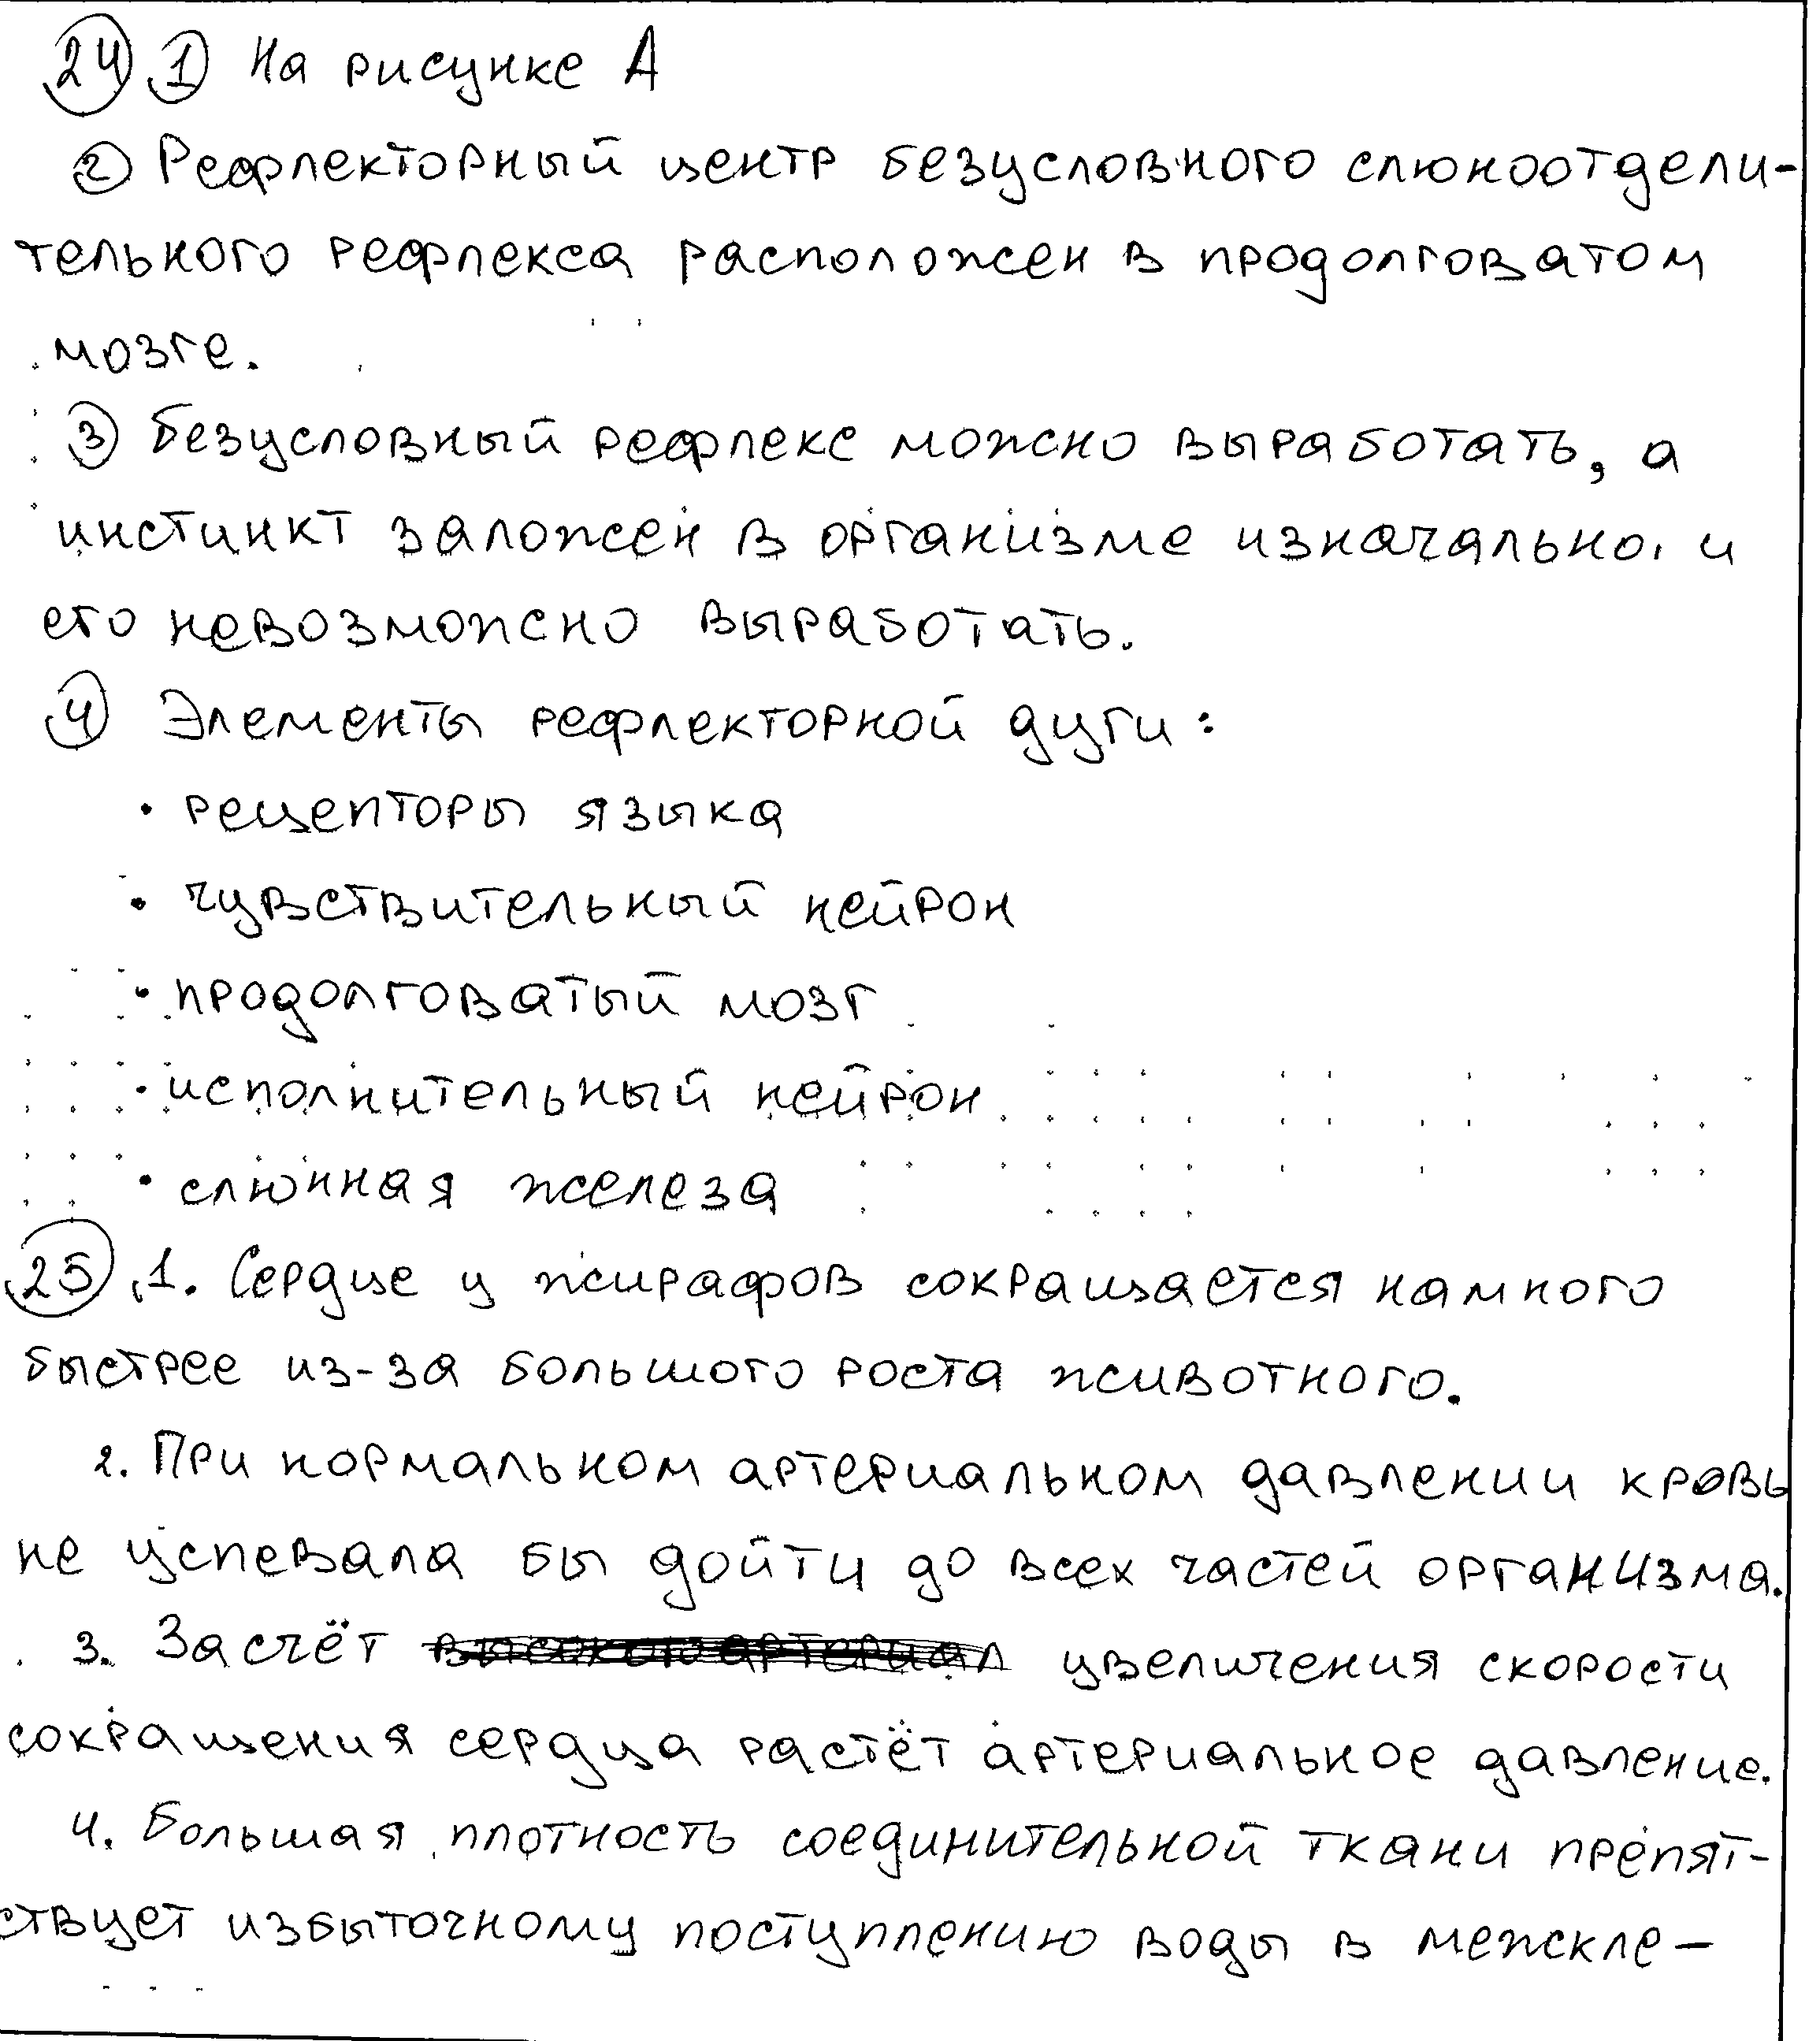 24 1 На рисунке А
2 Рефлекторный центр безусловного слюноотдели-
тельного рефлекса расположен в продолговатом
мозге.
3 Безусловный рефлекс можно выработать, а
инстинкт заложен в организме изначально и
его невозможно выработать.
4 Элементы рефлекторной дуги:
• рецепторы языка
• чувствительный нейрон
• продолговатый мозг
• исполнительный нейрон
• слюнная железа
25 1. Сердце у жирафов сокращается намного
быстрее из-за большого роста животного.
2. При нормальном артериальном давлении кровь
не успевала бы дойти до всех частей организма.
3. За счёт увеличения скорости
сокращения сердца растёт артериальное давление.
4. Большая плотность соединительной ткани препят-
ствует избыточному поступлению воды в межкле-